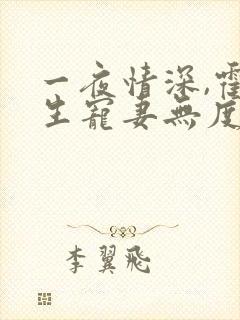 一夜情深,霍
生寵妻無度
李翼飛